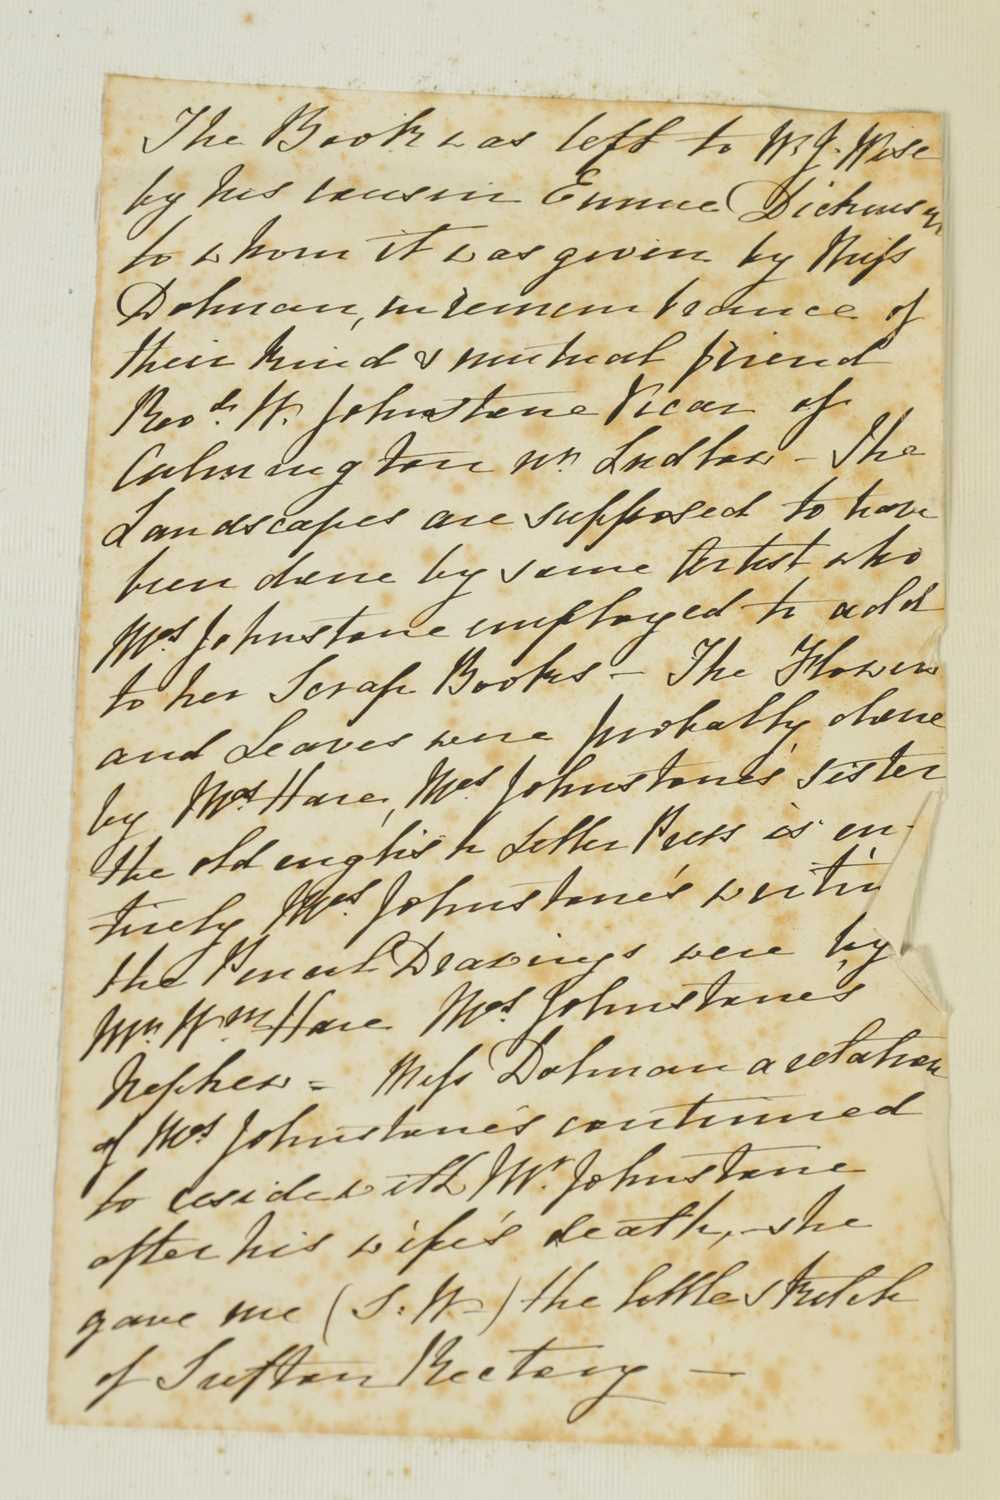 The Book was left to W. J. Wise
by his cousin Emma Dickinson
to whom it was given by Miss
Dolman, in remembrance of
their kind & mutual friend
Revd. W. Johnstone Vicar of
Culmington nr. Ludlow – The
Landscapes are supposed to have
been done by some Artist who
Mrs Johnstone employed to add
to her Scrap Books – The Flowers
and Leaves were probably done
by Mrs Hare, Mrs Johnstone's sister
the old english Letter Press is en-
tirely Mrs. Johnstone's writin
the Pencil Drawings were by
Wm Hare Mrs. Johnstone's
Nephew = Miss Dolman a relation
of Mrs Johnstone's continued
to reside with Mr. Johnstone
after his wife's death, – she
gave me (S. W–) the little sketch
of Sutton Rectory –